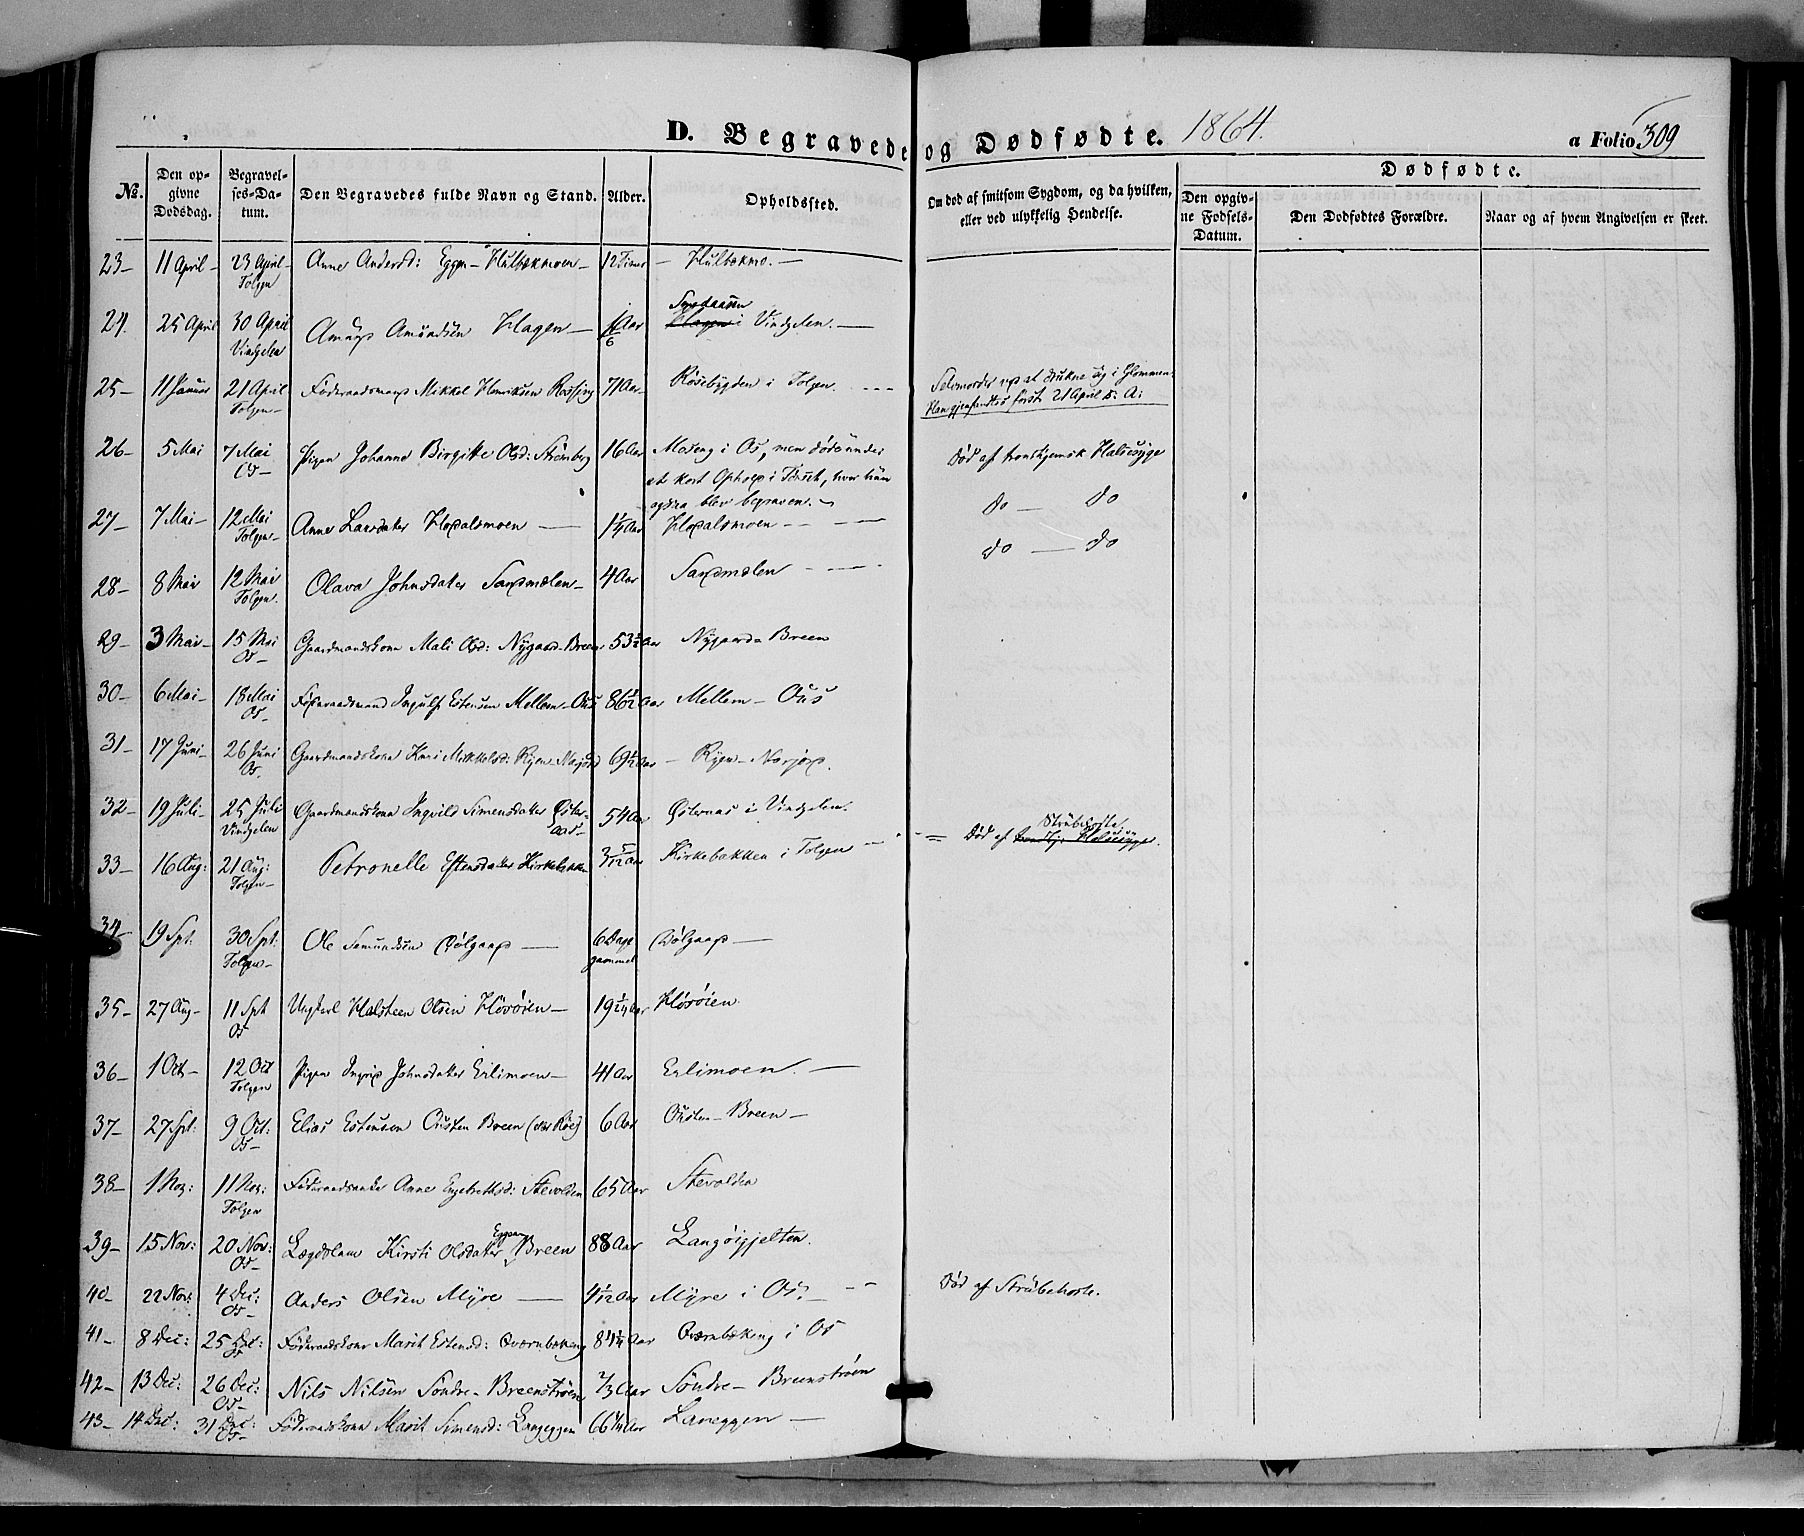 D. Begravede og Dødfødte. 1864. a Folio 309
Dødfødte.
No. Den opgivne Dødsdag. Begravelses-Datum. Den Begravedes fulde Navn og Stand. Alder. Opholdssted. Om død af smitsom Sygdom, og da hvilken, eller ved ulykkelig Hendelse. Den opgivne Fødsels-Datum. Den Dødfødtes Forældre. Naar og af hvem Angivelsen er skeet.
23- 11 April- 23 April- Tolgen Anne Andersd: Eggen- Hulbækmoen- 12 Timer - Hulbækmo.-
24. 25 April 30 April Vindgelen Amund Amundsen Hagen- Aar i Vindgelen.-
25- 11 Januar 21 April Tolgen- Føderaadsmand Mikkel Henriksen 71 Aar i Tolgen. Selvmorder ved at drukne sig i Glommen. først 21 April d: A:
26- 5 Mai 7 Mai Os- Pigen Johanne Birgitte Olsd: Strømberg 16 Aar Moseng i Os, men døde under et kort Ophold i hvor hun ogsaa blev begraven.- Død af Halssyge
27- 7 Mai- 12 Mai Tolgen- Anne Larsdatter Hodalsmoen- 1¼ Aar Hodalsmoen- do - do
28- 8 Mai 12 Mai Tolgen. Olava Johnsdatter Sandmælen- 4 Aar Sandmælen do - do
29- 3 Mai- 15 Mai Os- Gaardmandskone Mali Olsd: Nygaard-Breen 53½ Aar Nygaard- Breen
30- 6 Mai- 18 Mai Os- Føderaadsmand Ingulf Estensen Mellem-Ous 86½ Aar Mellem- Ous
31- 17 Juni- 26 Juni Os- Gaardmandskone Kari Mikkelsd: Ryen-Narjord 69½ Aar - Ryen- Narjord.
32- 19 Juli- 25 Juli Vindgelen Gaardmandskone Ingvild Simensdatter Østeraas- 54 Aar Østeraas i Vindgelen.
33- 16 Aug: 21 Aug: Tolgen- Petronelle Estensdatter Kirkebakken 3 5/12 Aar Kirkebakken i Tolgen- Død af Strubehoste.
34- 19 Spt. 30 Spt: Tolgen- Ole Semundsen Dølgaard- 6 Dage gammel Dølgaard-
35- 27 Aug- 11 Spt Os Ungkarl Halsteen Olsen Horøien- 19 Aar Horøien.
36- 1 Oct- 12 Oct Tolgen Pigen Ingrid Johnsdatter Erlimoen- 41 Aar Erlimoen.-
37- 27 Spt: 9 Oct: Os- Elias Estensen Ousten Breen 6 Aar Ousten- Breen-
38- 1 Nov: 11 Nov: Tolgen Føderaadsenke Anne Engebrettsd: Stevolden 65 Aar Stevolden
39- 15 Nov: 20 Nov: Os- Lægdslem Kirsti Olsdatter Eggen Breen 88 Aar Langøigjelten.
40- 22 Nov: 4 Dec: Os- Anders Olsen Myre- 4 1/12 Aar Myre i Os.- Død af Strubehoste.
41- 8 Dec: 25 Dec: Os Føderaadskone Marit Estensd: Qværnbækeng Aar Qværnbækeng i Os
42- 13 Dec: 26 Dec: Os- Nils Nilsen Søndre-Breenstrøen 2/3 Aar Søndre- Breenstrøen
43- 14 Dec: 31 Dec: Os- Føderaadskone Marit Simensd: Langeggen 66¼ Aar Laneggen-